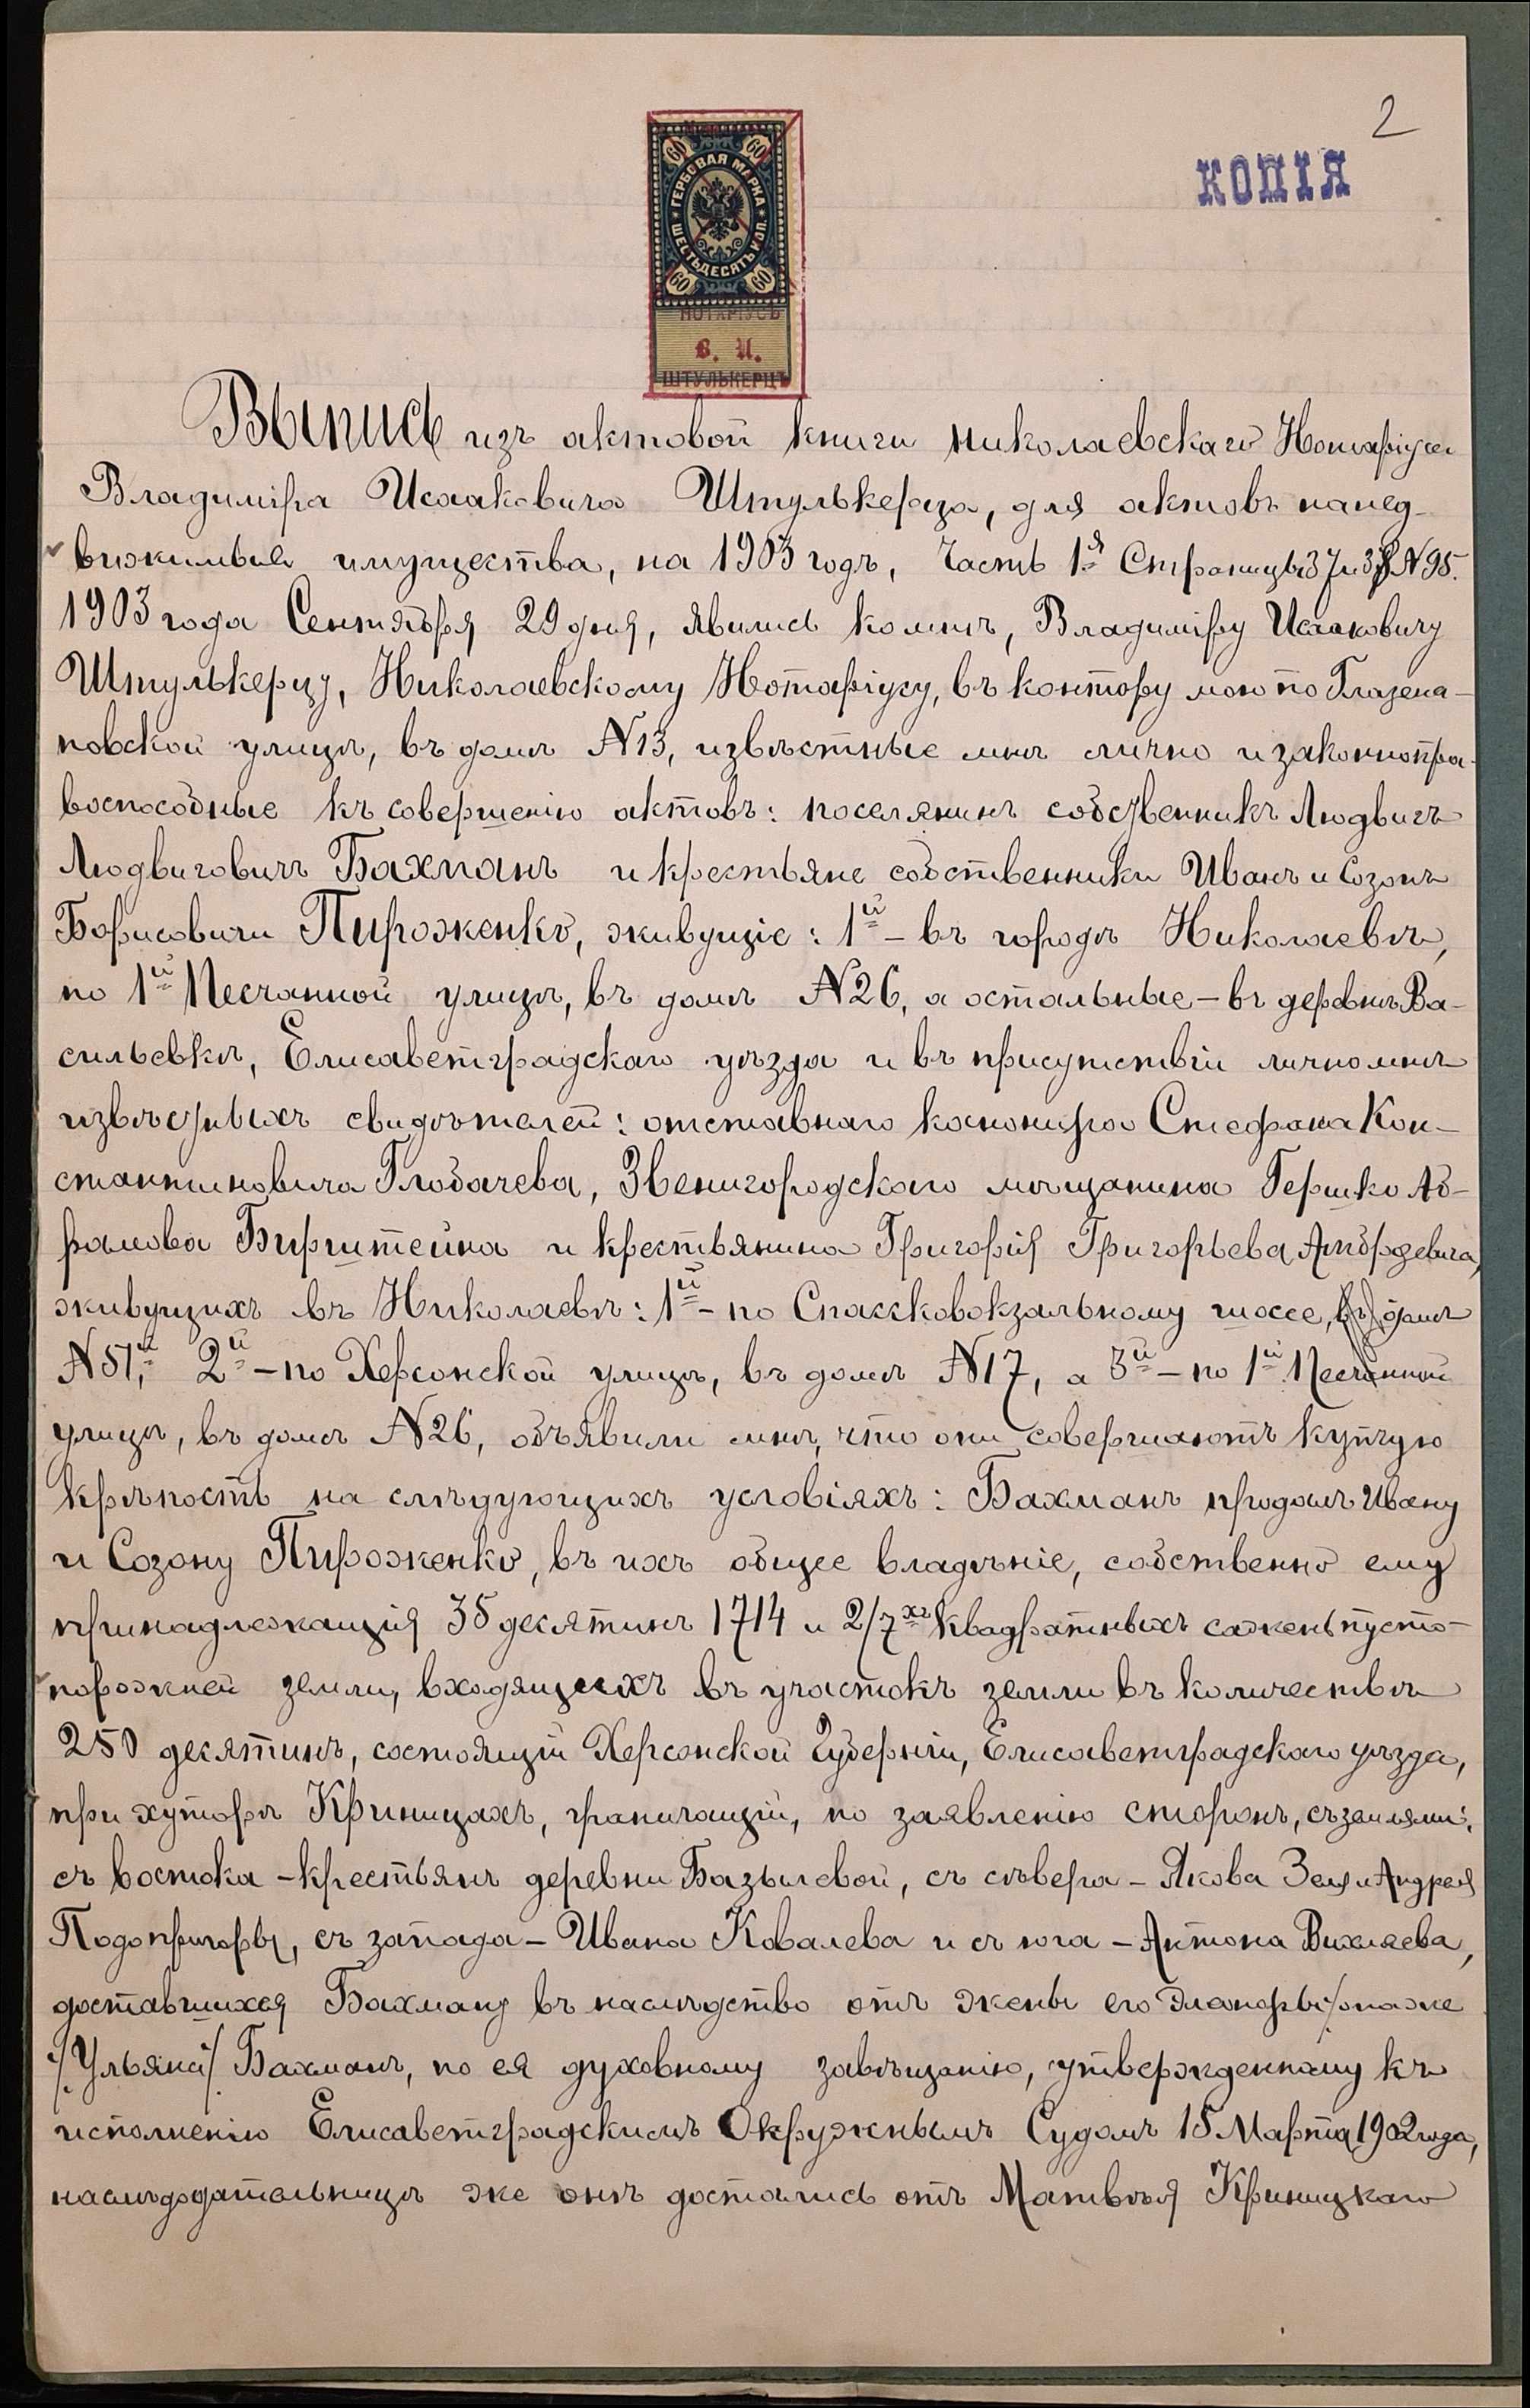 2
КОПІЯ
60 60
ГЕРБОВАЯ МАРКА
ШЕСТЬДЕСЯТЪ КОП.
60 60
НОТАРІУСЪ
В. И.
ШТУЛЬКЕРЦЪ
Выпись изъ актовой книги николаевскаго Нотаріуса
Владиміра Исааковича Штулькерца, для актовъ на нед-
вижимыя имущества, на 1903 годъ, Часть 1я Страницы 37 и 38 N 95.
1903 года Сентября 29 дня, явились ко мнѣ, Владиміру Исааковичу
Штулькерцу, Николаевскому Нотаріусу, въ контору мою по Глазена-
повской улицѣ, въ домѣ N 13, извѣстные мнѣ лично и законнопра-
воспособные къ совершенію актовъ: поселянинъ собственникъ Людвигъ
Людвиговичъ Бахманъ и крестьяне собственники Иванъ и Созонъ
Борисовичи Пироженко, живущіе: 1й – въ городѣ Николаевѣ,
по 1й Песчанной улицѣ, въ домѣ N 26, а остальные – въ деревнѣ Ва-
сильевкѣ, Елисаветградскаго уѣзда и въ присутствіи лично мнѣ
извѣстныхъ свидѣтелей: отставнаго канонира Стефана Кон-
стантиновича Глобачева, Звенигородскаго мѣщанина Гершко Аб-
рамова Бирштейна и крестьянина Григорія Григорьева
живущихъ въ Николаевѣ: 1й – по Спасковокзальному шоссе, въ домѣ
N 51, 2й – по Херсонской улицѣ, въ домѣ N 17, а 3й – по 1й Песчанной
улицѣ, въ домѣ N 26, объявили мнѣ, что они совершаютъ купчую
крѣпость на слѣдующихъ условіяхъ: Бахманъ продалъ Ивану
и Созону Пироженко, въ ихъ общее владѣніе, собственно ему
принадлежащія 35 десятинъ 1714 и 2/7хъ квадратныхъ сажень пусто-
порожней земли, входящихъ въ участокъ земли въ количествѣ
250 десятинъ, состоящій Херсонской Губерніи, Елисаветградскаго уѣзда,
при хуторѣ Криницахъ, граничащій, по заявленію сторонъ, съ землями:
съ востока – крестьянъ деревни Базылевой, съ сѣвера – Якова и Андрея
Подопригоры, съ запада – Ивана Ковалева и съ юга – Антона Вихляева,
доставшихся Бахману въ наслѣдство отъ жены его Элеоноры /онаже
/Ульяна/ Бахманъ, по ея духовному завѣщанію, утвержденному къ
исполненію Елисаветградскимъ Окружнымъ Судомъ 15 Марта 1902 года,
наслѣдодательницѣ же онѣ достались отъ Матвѣя Криницкаго